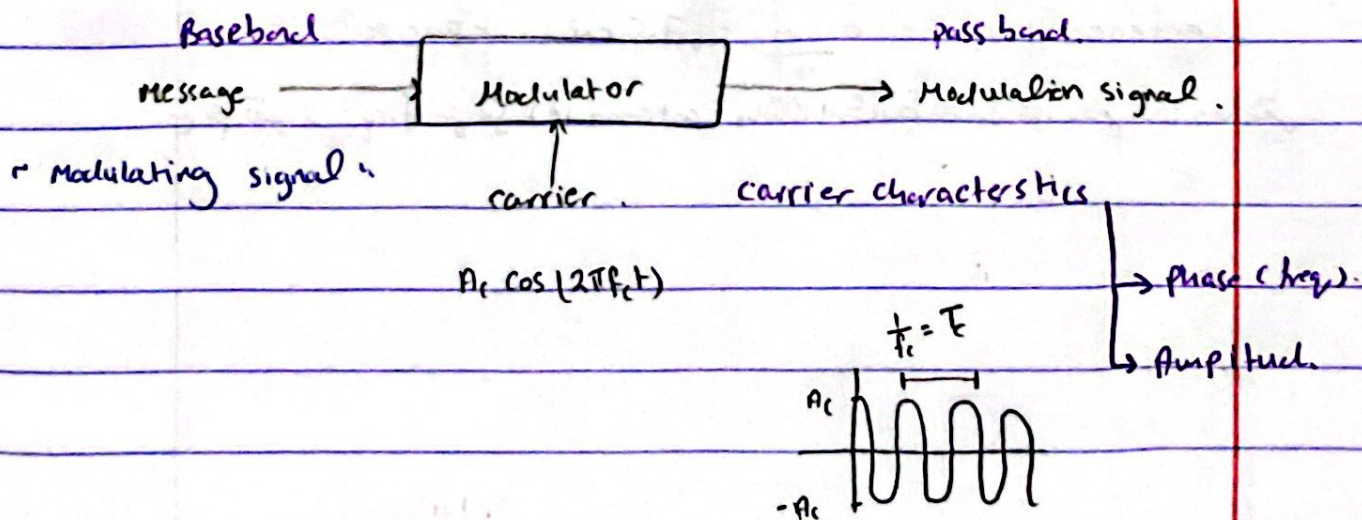 Baseband pass band.
Message Modulator Modulation signal.
" Modulating signal "
carrier. carrier characterstics
Ac cos (2πfct) phase (freq).
1/fc = Tc
Amplitud.
Ac
-Ac